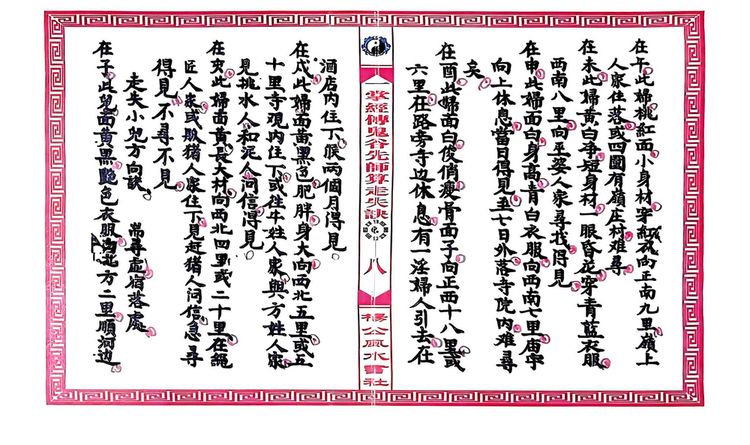 在午此婦桃紅面小身材穿紅衣向正南九里嶺上
人家住落或四圍有嶺庄村难尋
在未此婦黄白净短身材一眼昏花穿青藍衣服
西南八里向巫婆人家尋找得見
在申此婦面白身高青白衣服向西南七里庙宇
向上休息當日得見至七日外落寺院内难尋
矣
在酉此婦面白俊俏瘦骨面子向正西十八里或
六里在路旁寺边休息有一淫婦人引去在
掌經傳鬼谷先師算走失訣
八
楊公風水書社
酒店内住下候兩個月得見
在戌此婦面黄黑色肥胖身大向西北五里或五
十里寺观内住下或往牛姓人家與方姓人家
見挑水人和泥人问信得見
在亥此婦面黄長大材向西北四里或二十里在繩
匠人家或販猪人家住下見赶猪人问信息尋
得見不尋不見
走失小兒方向訣
常尋虛宿落處
在子此兒面黄黑艷色衣服向北方二里順河边